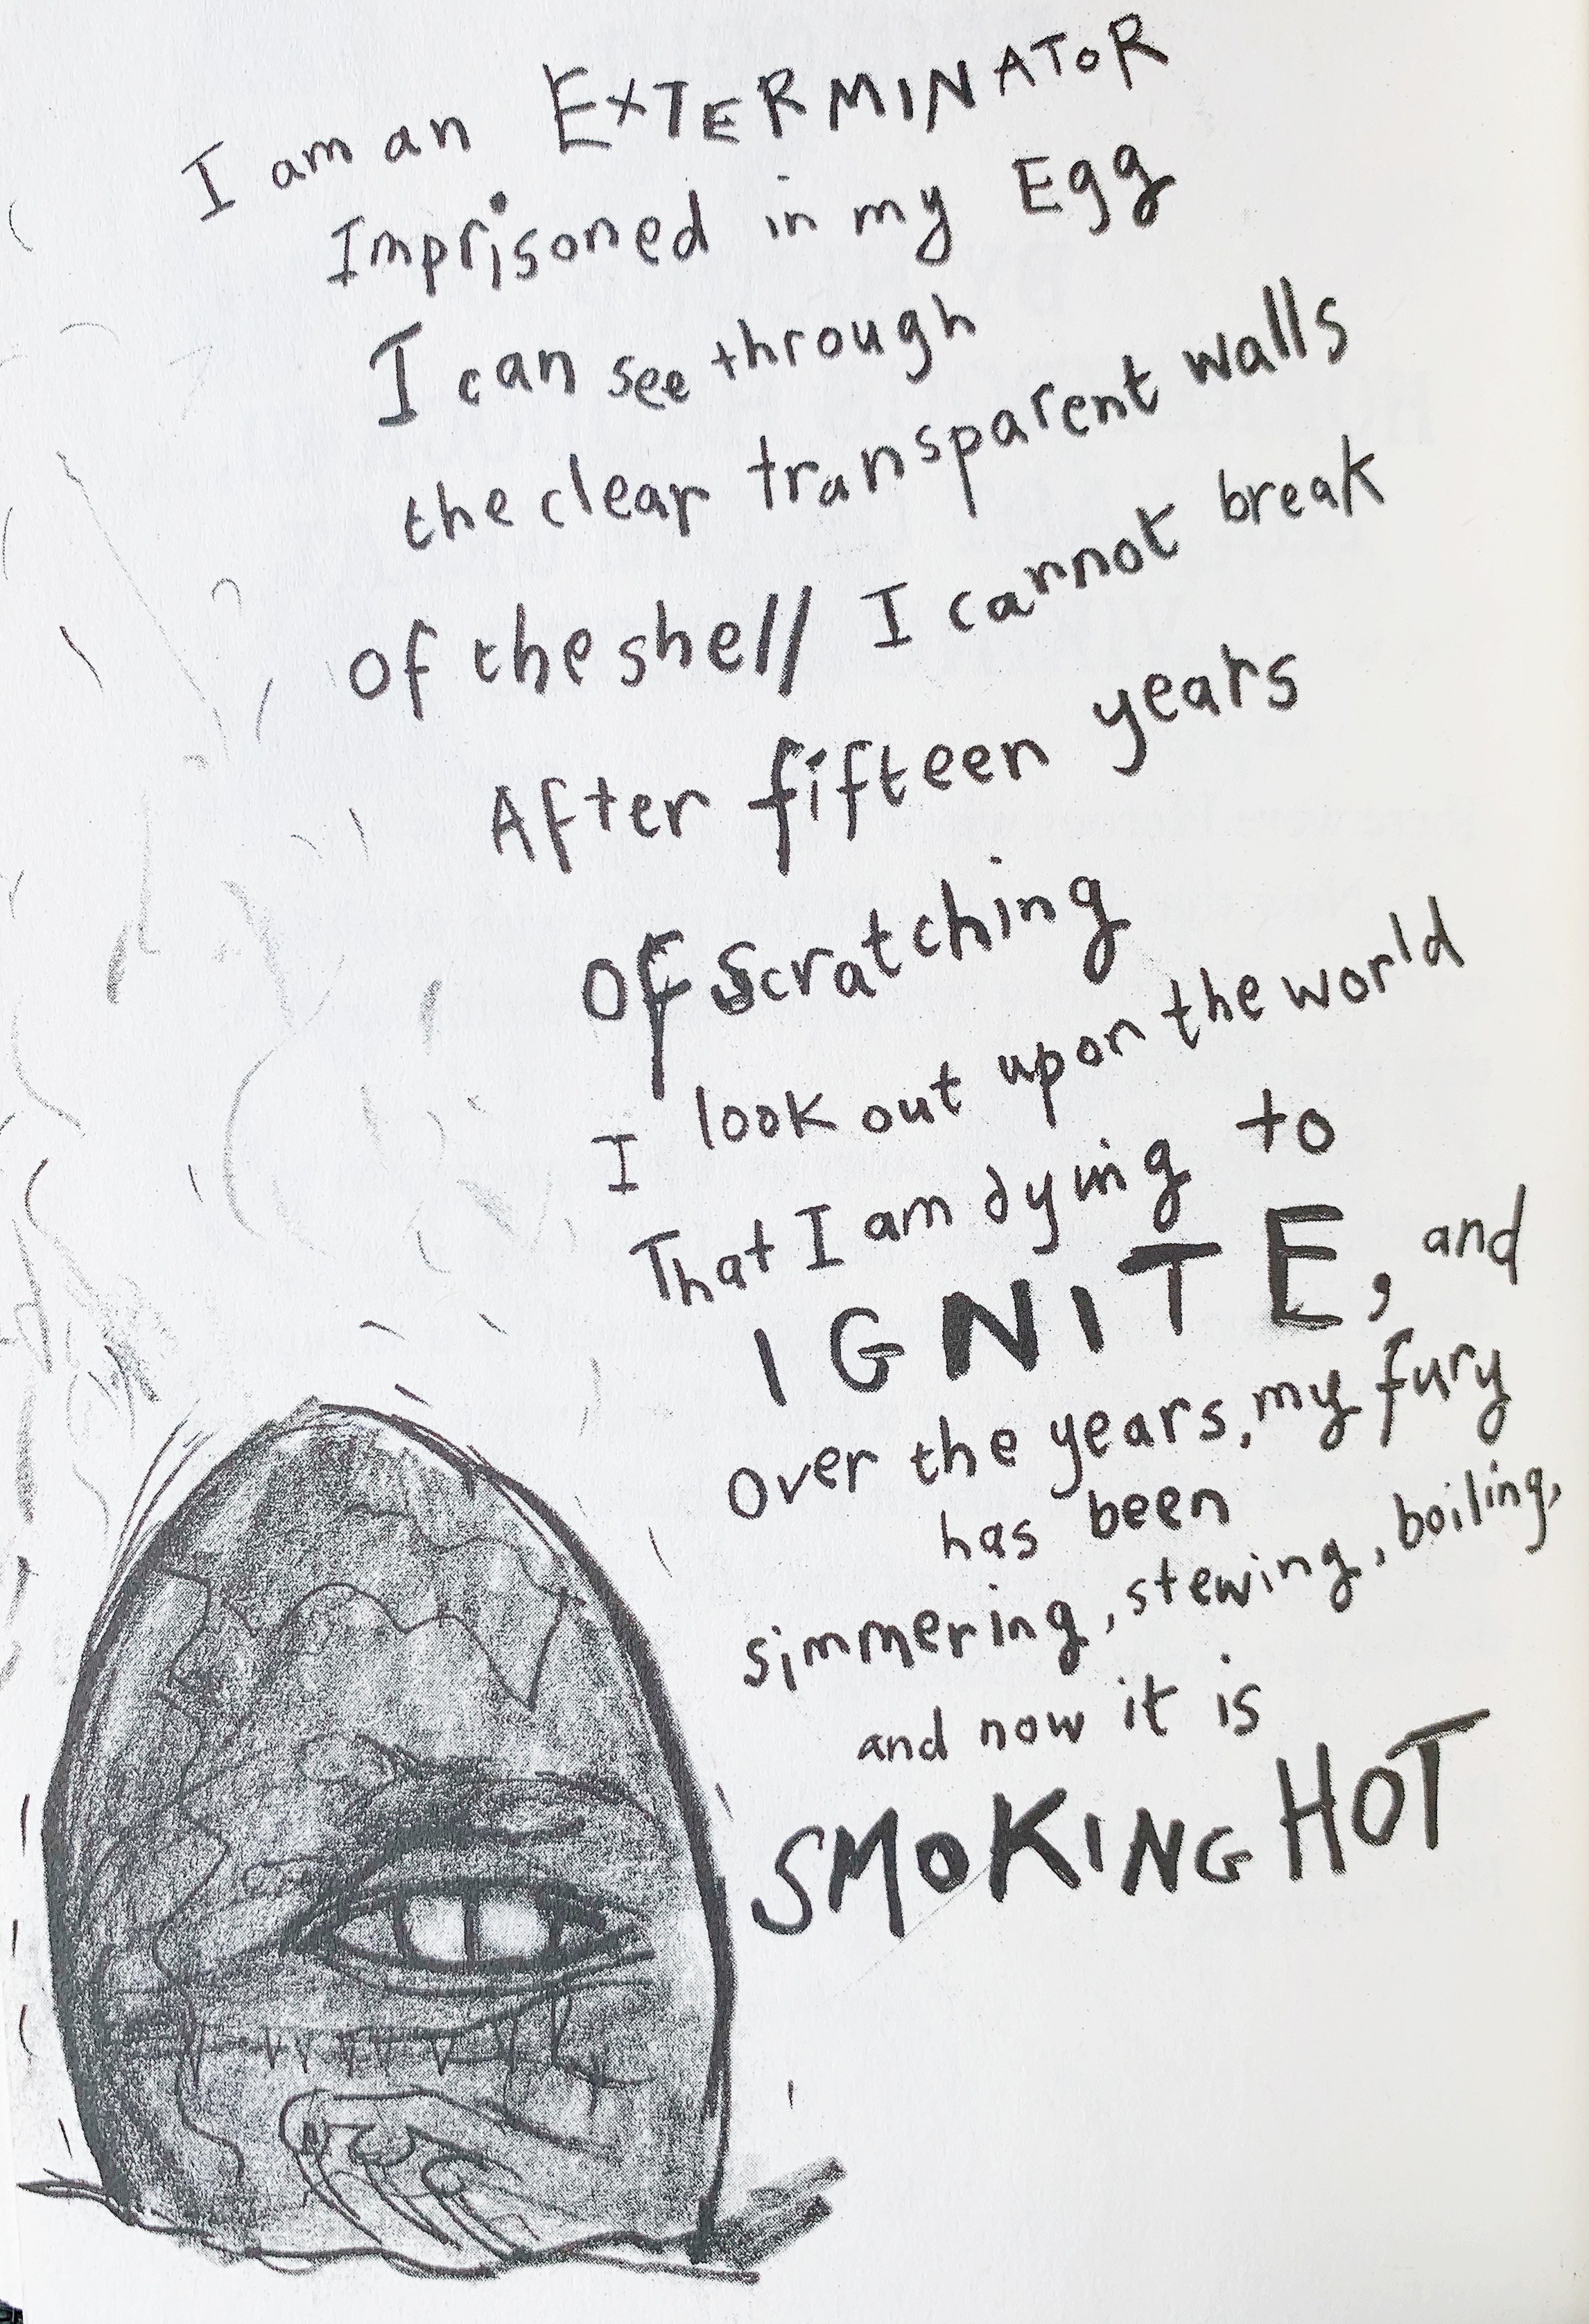 I am an EXTERMINATOR
Imprisoned in my Egg
I can see through
the clear transparent walls
of the shell I cannot break
After fifteen years
Of scratching
I look out upon the world
That I am dying to
IGNITE, and
over the years, my fury
has been
simmering, stewing, boiling,
and now it is
SMOKING HOT